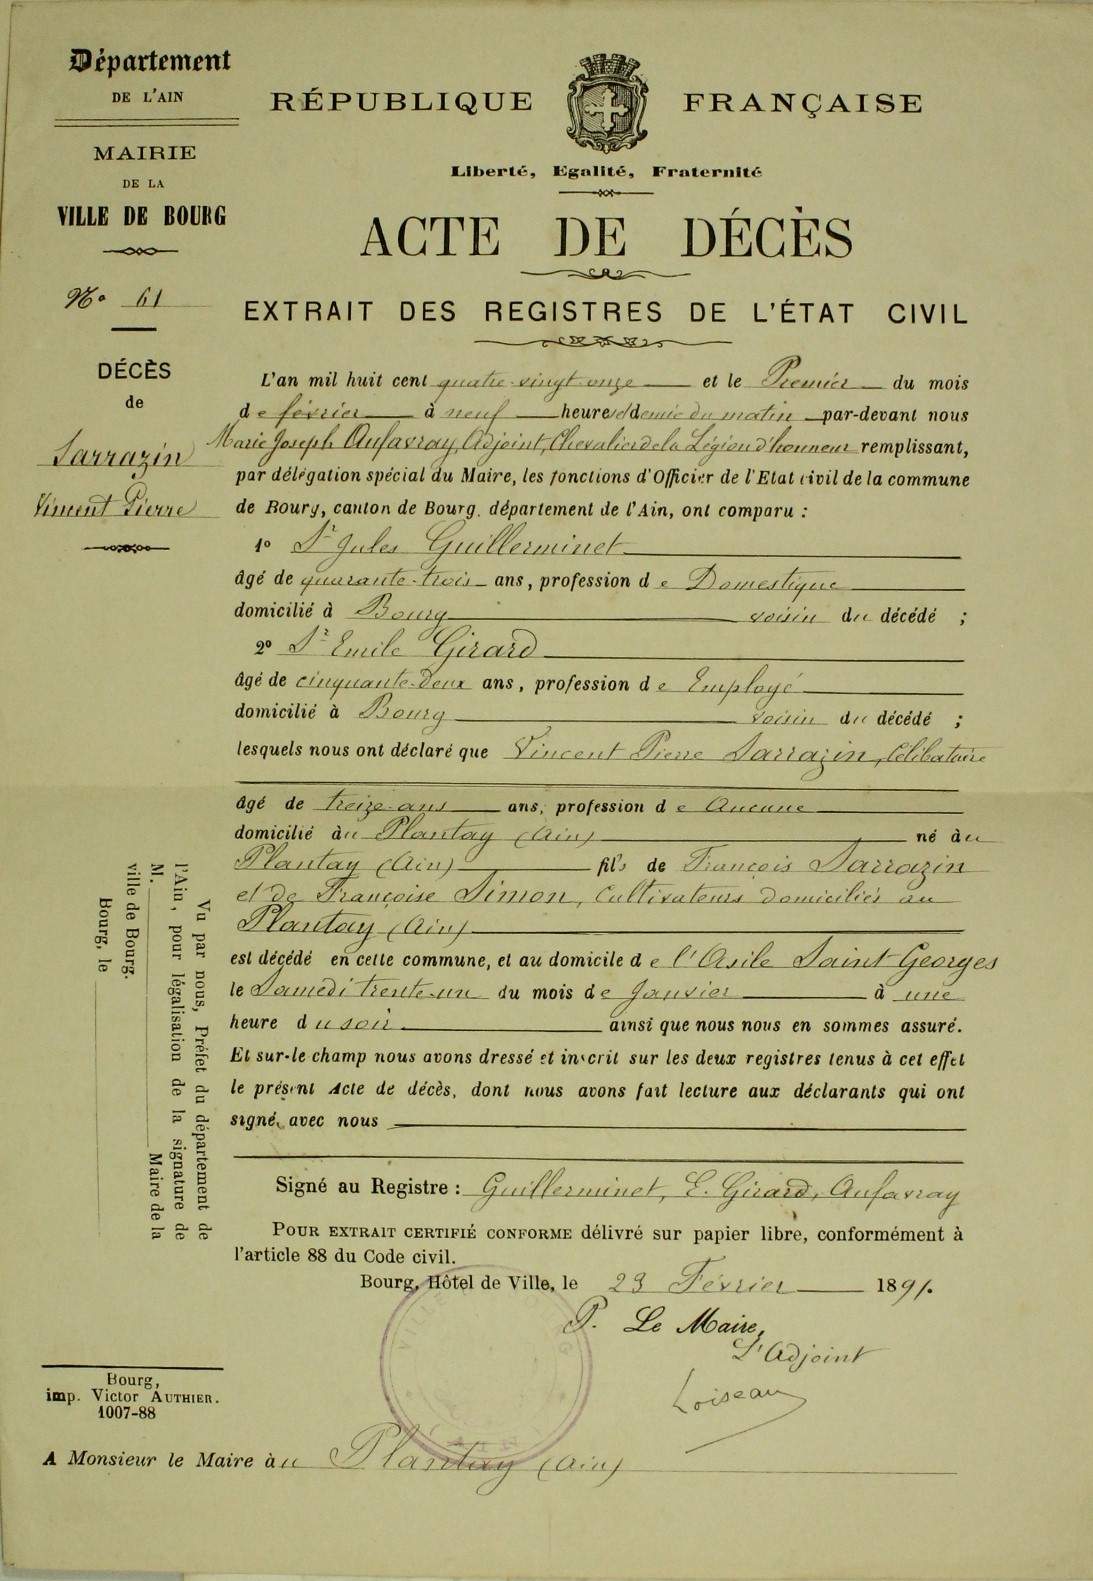 Département
DE L'AIN
MAIRIE
DE LA
VILLE DE BOURG
N° 61
DÉCÈS
de
Sarrazin
Vincent Pierre
RÉPUBLIQUE FRANÇAISE
Liberté, Egalité, Fraternité
ACTE DE DÉCÈS
EXTRAIT DES REGISTRES DE L'ÉTAT CIVIL
L'an mil huit cent quatre-vingt-onze et le Premier du mois
de février à neuf heures et demie du matin par-devant nous
Marie Joseph Aufavray, Adjoint, Chevalier de la Légion d'honneur remplissant,
par délégation spécial du Maire, les fonctions d'Officier de l'Etat civil de la commune
de Bourg, canton de Bourg, département de l'Ain, ont comparu :
1° Sr Jules Guillerminet
âgé de quarante-trois ans, profession de Domestique
domicilié à Bourg voisin du décédé ;
2° Sr Emile Girard
âgé de cinquante-deux ans, profession de Employé
domicilié à Bourg voisin du décédé ;
lesquels nous ont déclaré que Vincent Pierre Sarrazin, Célibataire
âgé de treize-ans ans, profession de Aucune
domicilié àu Plantay (Ain) né àu
Plantay (Ain) fils de François Sarrazin
et de Françoise Simon, Cultivateurs domiciliés au
Plantay (Ain)
est décédé en cette commune, et au domicile de l'Asile Saint Georges
le Samedi trente-un du mois de Janvier à une
heure du soir ainsi que nous nous en sommes assuré.
Et sur-le champ nous avons dressé et inscrit sur les deux registres tenus à cet effet
le présent Acte de décès, dont nous avons fait lecture aux déclarants qui ont
signé, avec nous
Signé au Registre : Guillerminet, E. Girard, Aufavray
POUR EXTRAIT CERTIFIÉ CONFORME délivré sur papier libre, conformément à
l'article 88 du Code civil.
Bourg, Hôtel de Ville, le 23 Février 1891.
P. Le Maire,
L'Adjoint
Loiseau
Vu par nous, Préfet du département de
l'Ain, pour légalisation de la signature de
M. Maire de la
ville de Bourg.
Bourg, le
Bourg,
imp. Victor AUTHIER.
1007-88
A Monsieur le Maire àu Plantay (Ain)